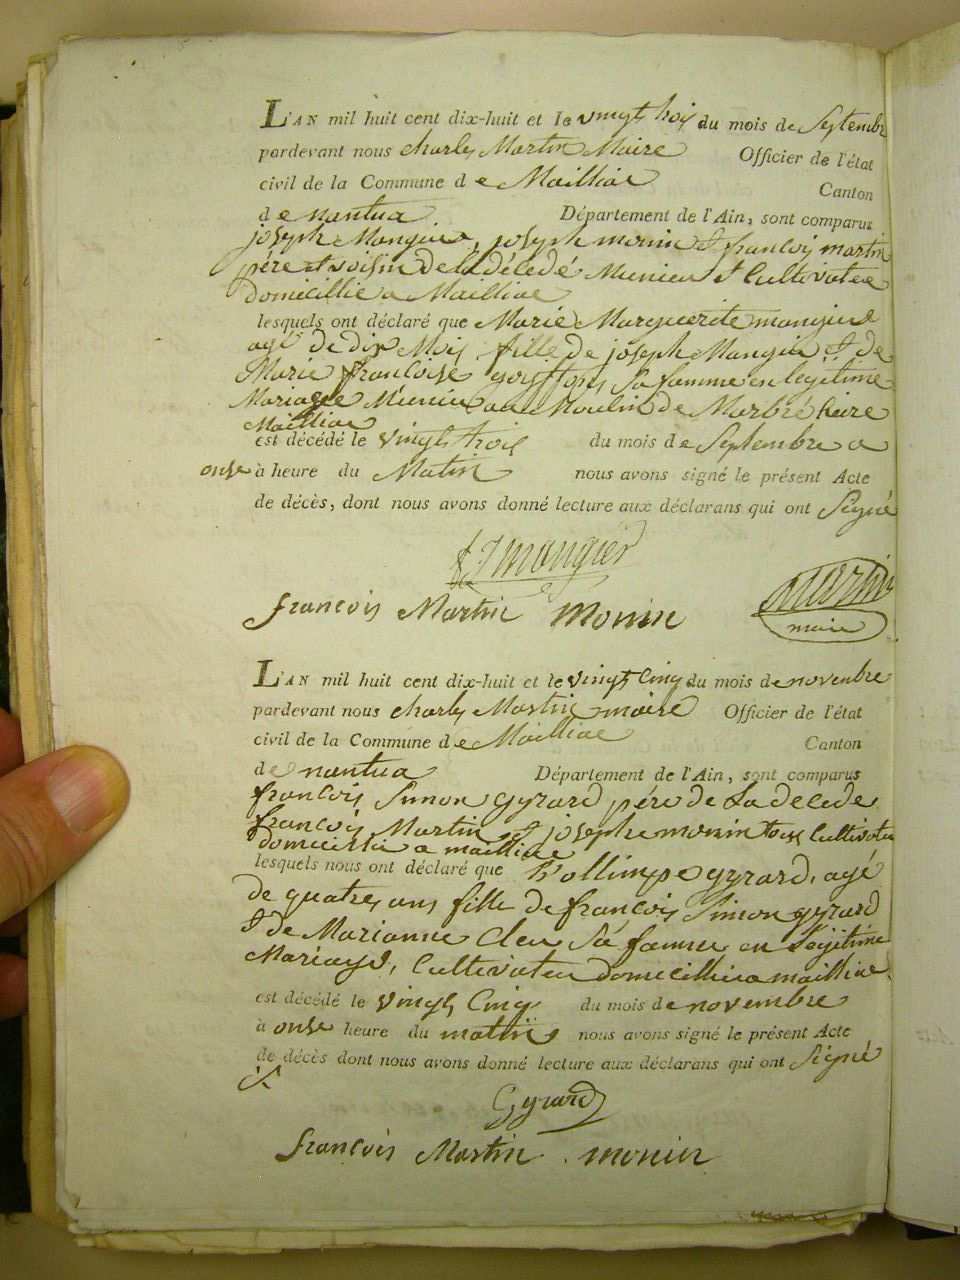 L'AN mil huit cent dix-huit et le vingt trois du mois de Septembre
pardevant nous charles Martin Maire Officier de l'état
civil de la Commune d e Mailliac Canton
d e nantua Département de l'Ain, sont comparus
joseph Mangier, joseph monin & francois martin
père et voisin de la décedé Munieu & Cultivateu
domicillié a Mailliac
lesquels ont déclaré que Marie Marguerite mangier
agé de dix Mois fille de joseph Mangier & de
Marie francoise Sa famme en legitime
Mariage Municu au Moulin de
Mailliac
est décédé le vingt trois du mois d e Septembre a
onse à heure du Matin nous avons signé le présent Acte
de décès, dont nous avons donné lecture aux déclarans qui ont Signé
J mangier
françois Martin Monin Martin
maire
L'AN mil huit cent dix-huit et le vingt Cinq du mois d e novembre
pardevant nous charles Martin maire Officier de l'état
civil de la Commune d e Mailliac Canton
d e nantua Département de l'Ain, sont comparus
francois Simon gyrard père de La decede
francois Martin & joseph monin tous Cultivateu
domicillié a mailliac
lesquels nous ont déclaré que gyrard, agé
de quatre, ans fille de françois Simon gyrard
& de Marianne Cleu Sa famme en Legitime
Mariage, Cultivateu domicillié a mailliac
est décédé le vingt Cinq du mois d e novembre
à onse heure du matin nous avons signé le présent Acte
de décès dont nous avons donné lecture aux déclarans qui ont Signé
Gyrard
françois Martin monin